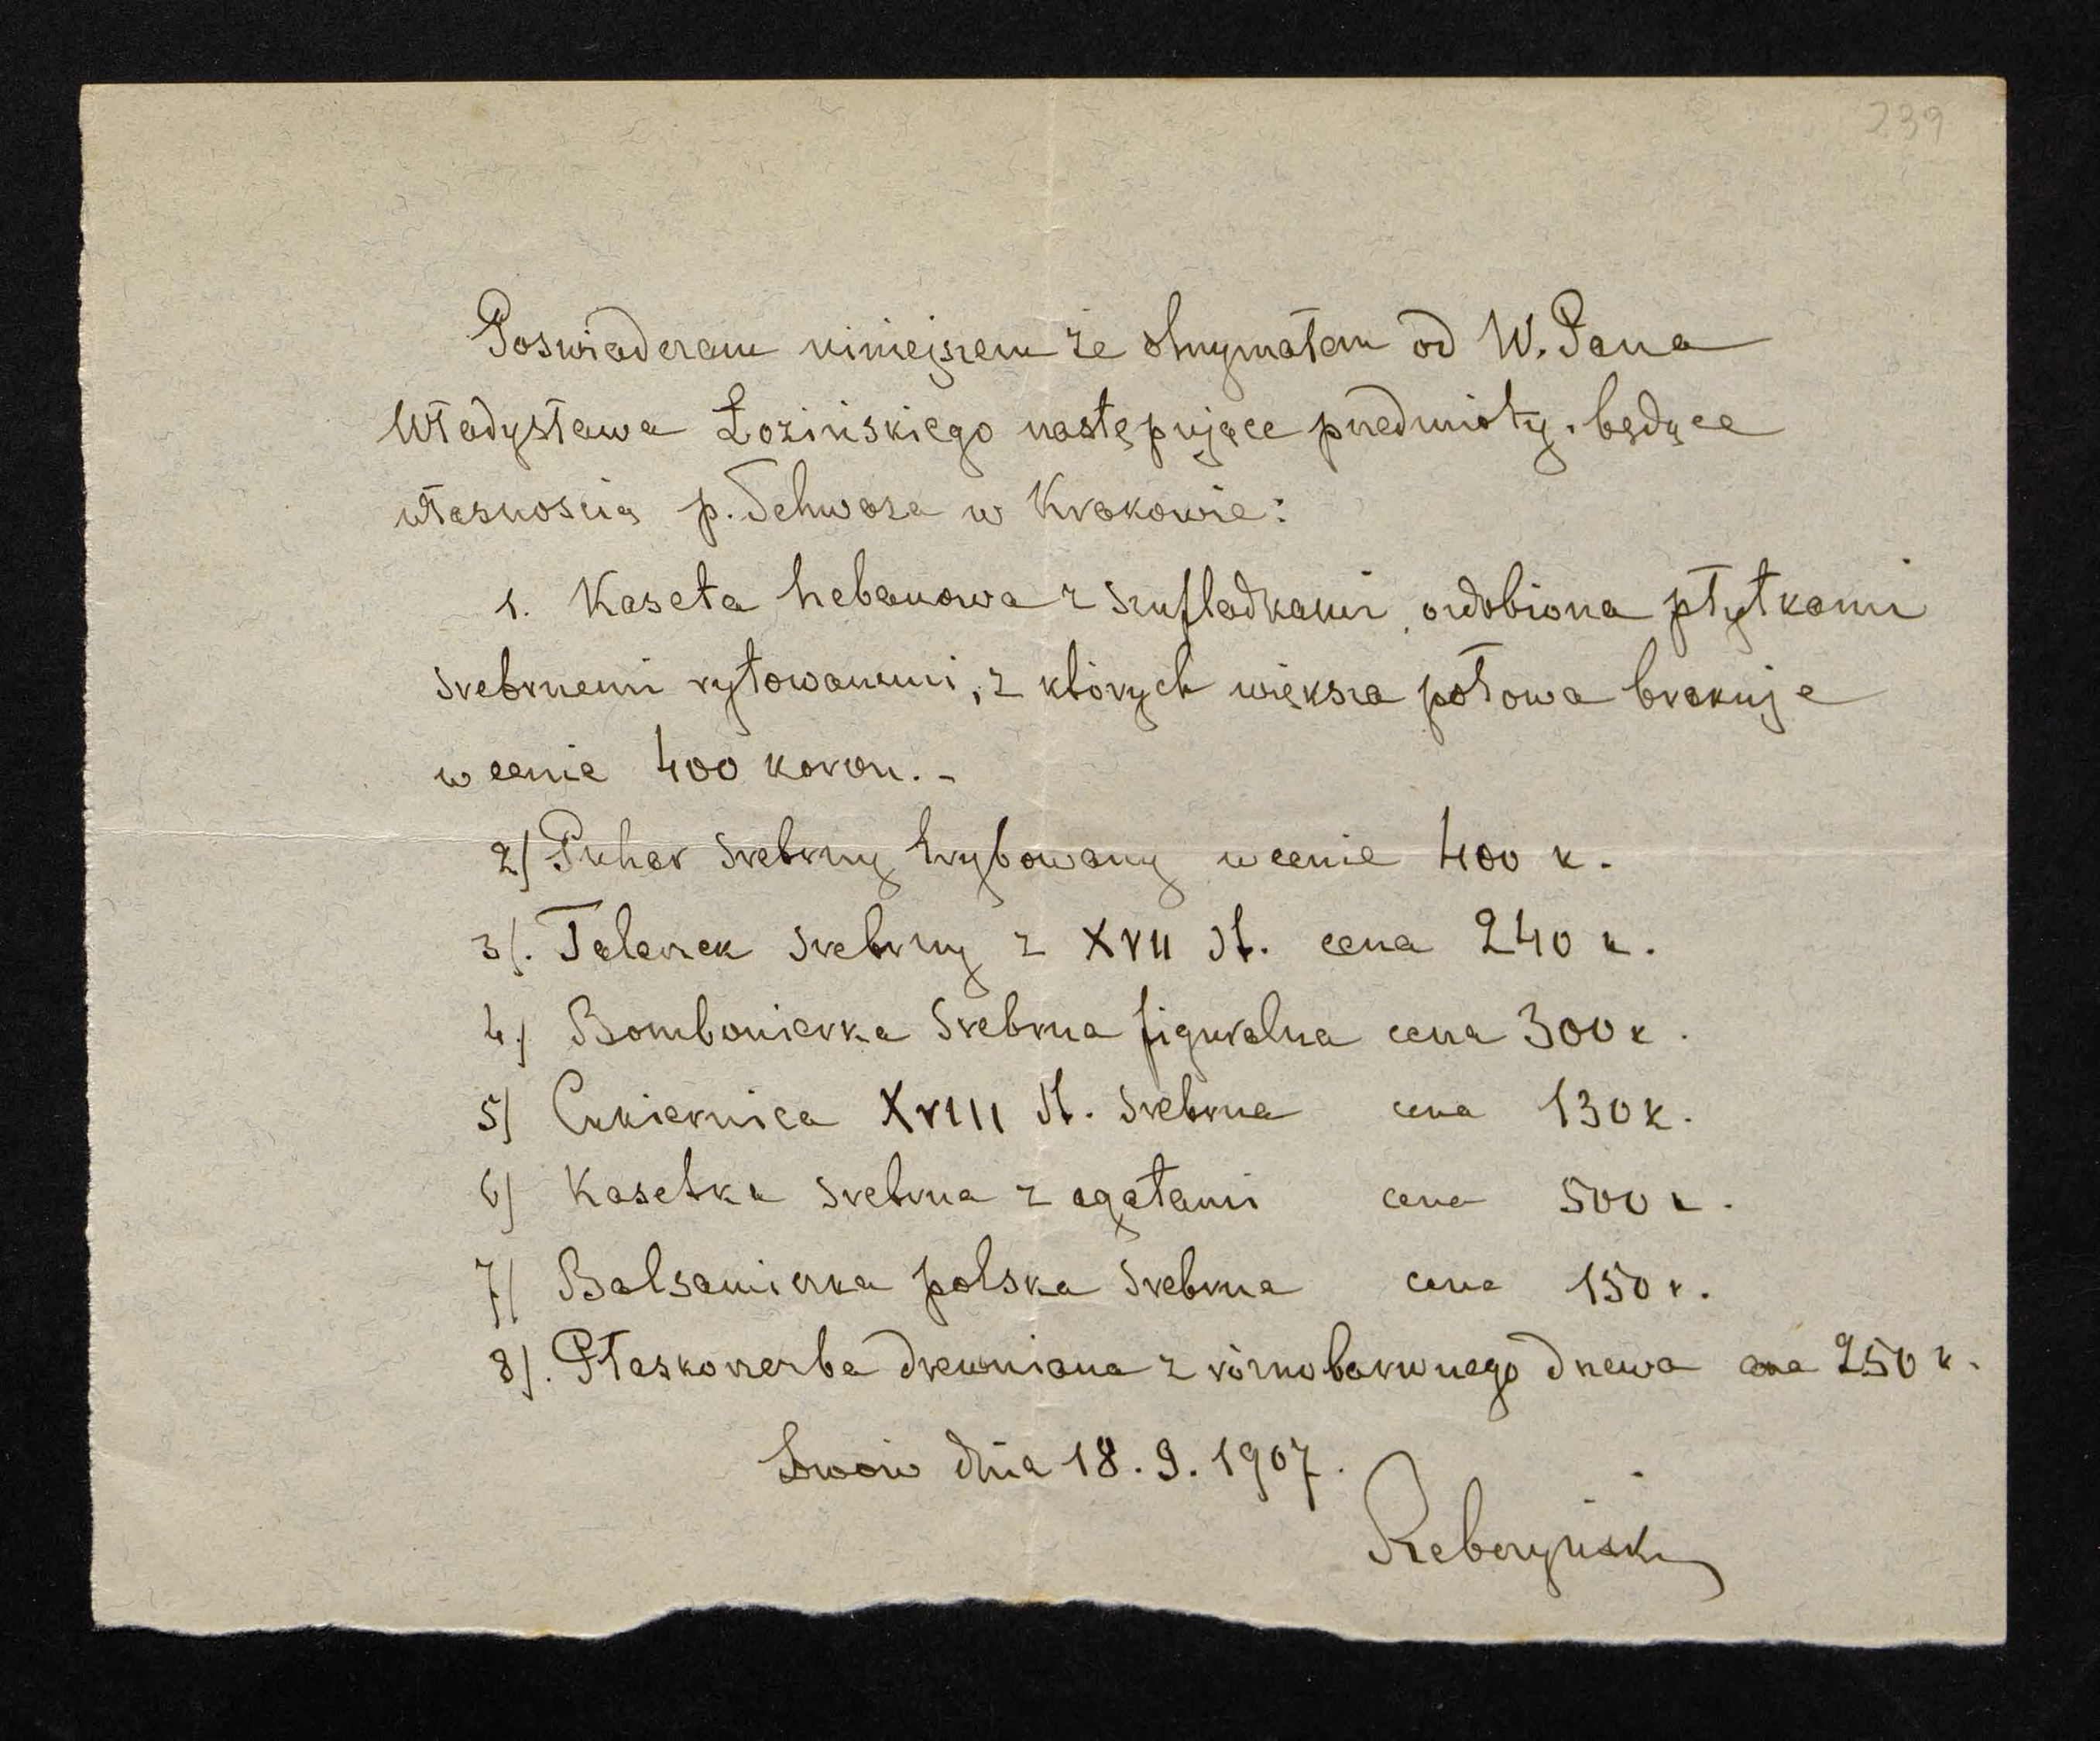 239
Poswiadczam niniejszem że otrzymałem od W. Pana
Władysława Łozińskiego następujące przedmioty, będące
własnością p. Schwarza w Krakowie:
1. Kaseta hebanowa z szufladkami, ozdobiona płytkami
srebrnemi rytowanemi, z których większa połowa brakuje
w cenie 400 koron. -
2) Puhar srebrny trybowany w cenie 400 k.
3). Talerzek srebrny z XVII st. cena 240 k.
4.) Bombonierka srebrna figuralna cena 300 k.
5) Cukiernica XVIII st. srebrna cena 130 k.
6) Kasetka srebrna z agatami cena 500 k.
7) Balsamierka polska srebrna cena 150 k.
8). Płaskorzezba drewniana z różnobarwnego drzewa cena 250 k.
Lwow dnia 18. 9. 1907.